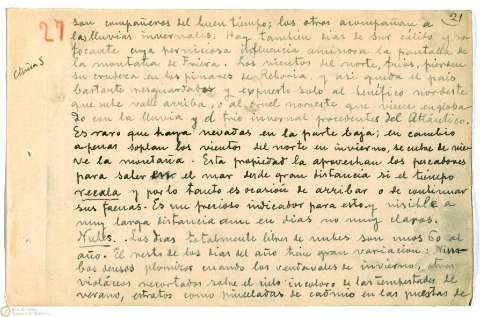 27
21
Clima S
son compañeros del buen tiempo; las otras acompañan a
las lluvias invernales. Hay también dias de Sur cálido y so-
focante cuya perniciosa influencia aminora la pantalla de
la montaña de Faéira. Los vientos del norte, frios, pierden
su crudeza en los pinares de y asi queda el pais
bastante resguardado y expuesto solo al benéfico nordeste
que sube valle arriba, o al cruel noroeste que viene engloba
do con la lluvia y el frio invernal procedentes del Atlántico.
Es raro que haya nevadas en la parte baja; en cambio
apenas soplan los vientos del norte en invierno, se cubre de nie-
ve la montaña. Esta propiedad la aprovechan los pescadores
para saber en el mar desde gran distancia si el tiempo
recala y por lo tanto es ocasión de arribar o de continuar
sus faenas. Es un precioso indicador para esto, y visible a
muy larga distancia aun en dias no muy claros.
Nubes. Los dias totalmente libres de nubes son unos 60 al
año. El resto de los dias del año hay gran variación: Nim-
bos densos plomizos cuando los vendavales de invierno; otros
violáceos recortados sobre el cielo incoloro de las tempestades de
verano, estratos como pinceladas de cadmio en las puestas de